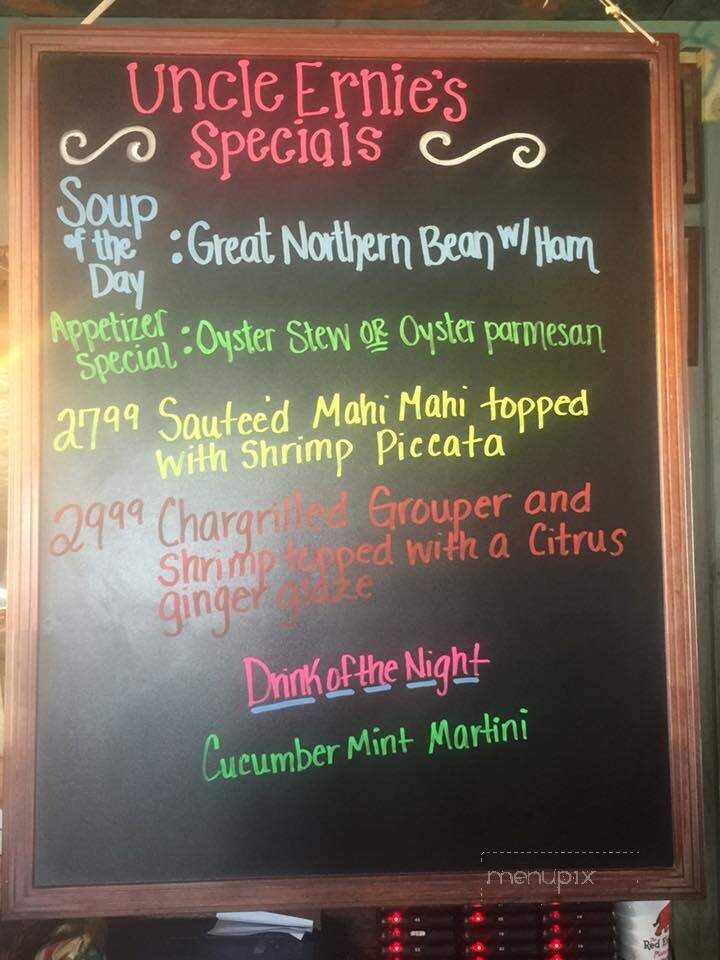 Uncle Ernie's
Specials
Soup
of the
Day
: Great Northern Bean w/ Ham
Appetizer
Special
: Oyster Stew OR Oyster parmesan
27 99 Sautee'd Mahi Mahi topped
with Shrimp Piccata
29 99 Chargrilled Grouper and
Shrimp topped with a Citrus
ginger glaze
Drink of the Night
Cucumber Mint Martini
menupix
Red